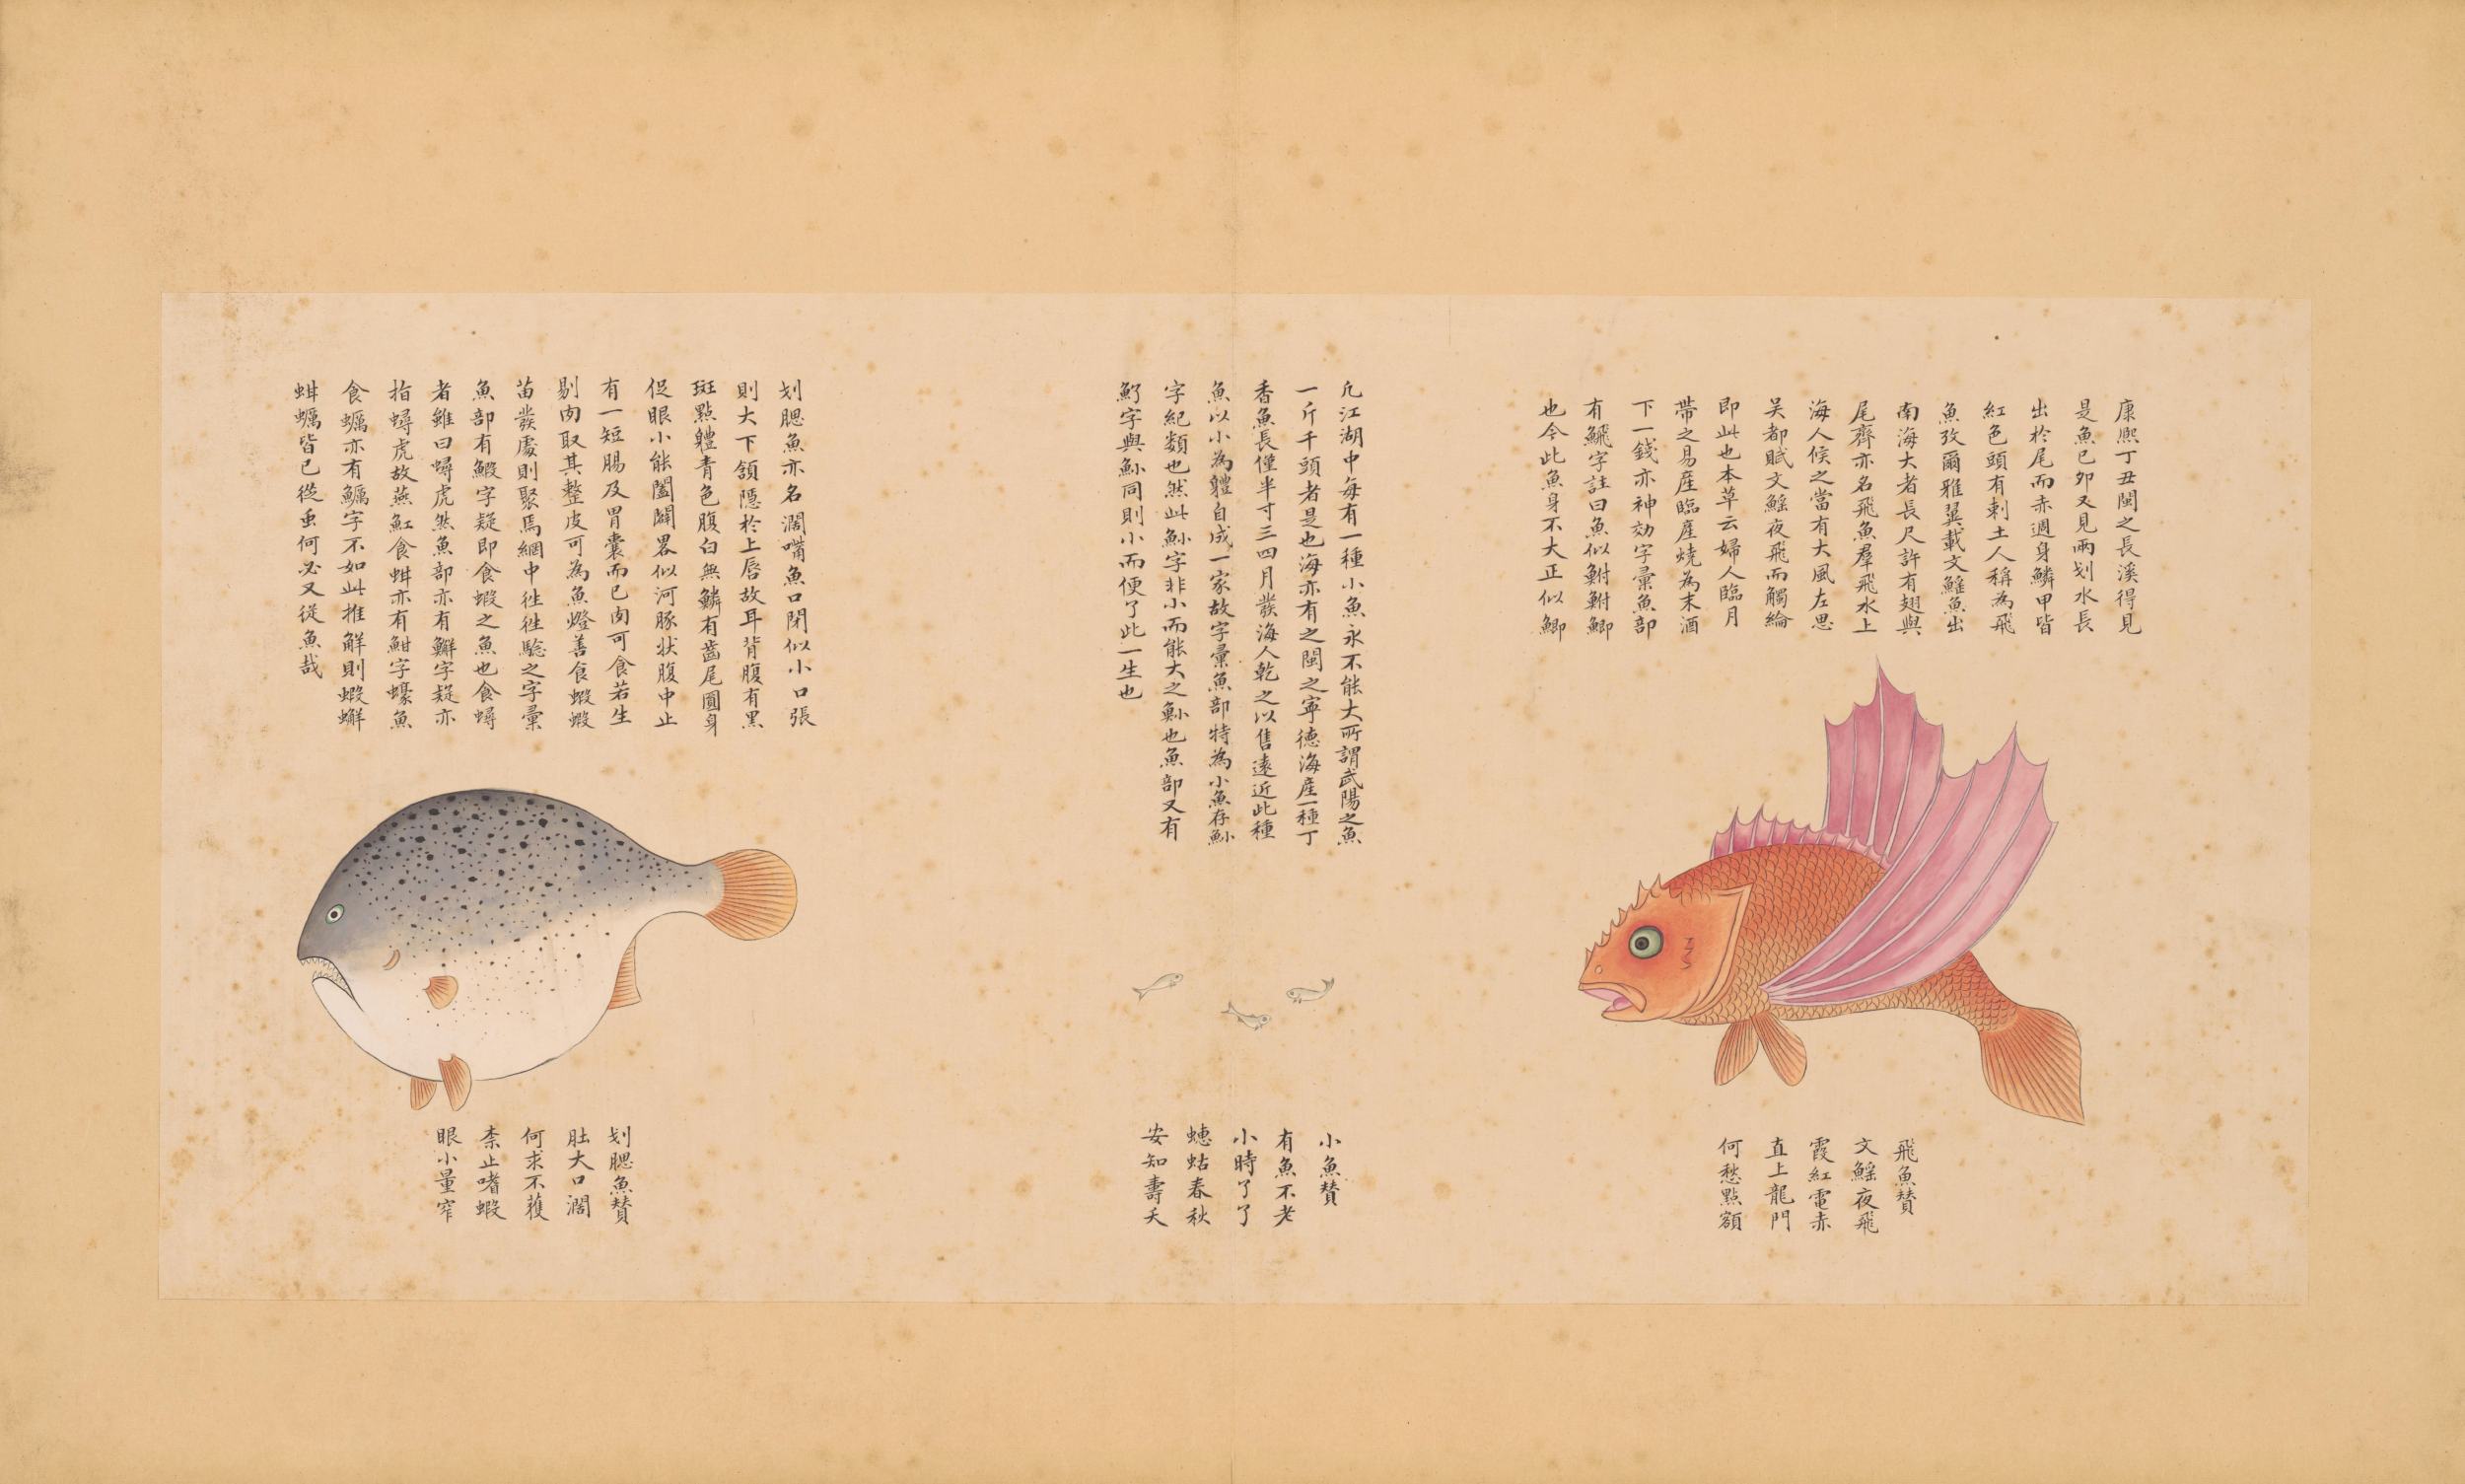 康熈丁丑閩之長溪得見
是魚已夘又見兩划水長
出於尾而赤週身鱗甲皆
紅色頭有刺土人稱為飛
魚攷爾雅翼載文鰩魚出
南海大者長尺許有翅與
尾齊亦名飛魚羣飛水上
海人候之當有大風左思
吴都賦文鰩夜飛而觸綸
即此也本草云婦人臨月
帶之易産臨産燒為末酒
下一錢亦神効字彙魚部
有䱎字註曰魚似鮒鮒鯽
也今此魚身不大正似鯽
飛魚賛
文鰩夜飛
霞紅電赤
直上龍門
何愁點額
凡江湖中每有一種小魚永不能大所謂武陽之魚
一斤千頭者是也海亦有之閩之寧德海産一種丁
香魚長僅半寸三四月發海人乾之以售遠近此種
魚以小為軆自成一家故字彙魚部特為小魚存𩵖
字紀類也然此𩵖字非小而能大之𩵖也魚部又有
字與𩵖同則小而便了此一生也
小魚賛
有魚不老
小時了了
蟪蛄春秋
安知壽夭
划腮魚亦名濶嘴魚口閉似小口張
則大下頷隱於上唇故耳背腹有黑
斑點軆青色腹白無鱗有齒尾圓身
促眼小能闔闢畧似河豚状腹中止
有一短腸及胃囊而已肉可食若生
剔肉取其整皮可為魚燈善食蝦蝦
苗發處則聚焉網中徃徃驗之字彙
魚部有鰕字疑即食蝦之魚也食蟳
者雖曰蟳虎然魚部亦有䲒字疑亦
指蟳虎故燕魟食蚶亦有魽字蠔魚
食蠣亦有鱱字不如此推解則蝦蠏
蚶蠣皆已從虫何必又從魚哉
划腮魚賛
肚大口濶
何求不獲
柰止嗜蝦
眼小量窄